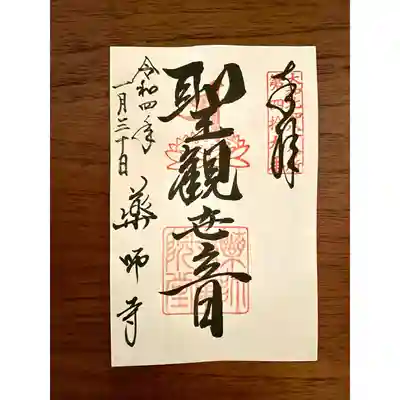 奉拝
聖觀世音
令和四年
一月三十日
薬師寺